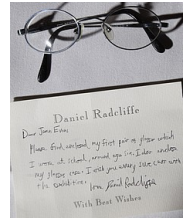 Daniel Radcliffe
Dear Jane Eva,
Please find, enclosed, my first pair of glasses which
I wore at school, around age six. I also enclose
my glasses case. I wish you every success with
the exhibition. from Daniel Radcliffe
With Best Wishes